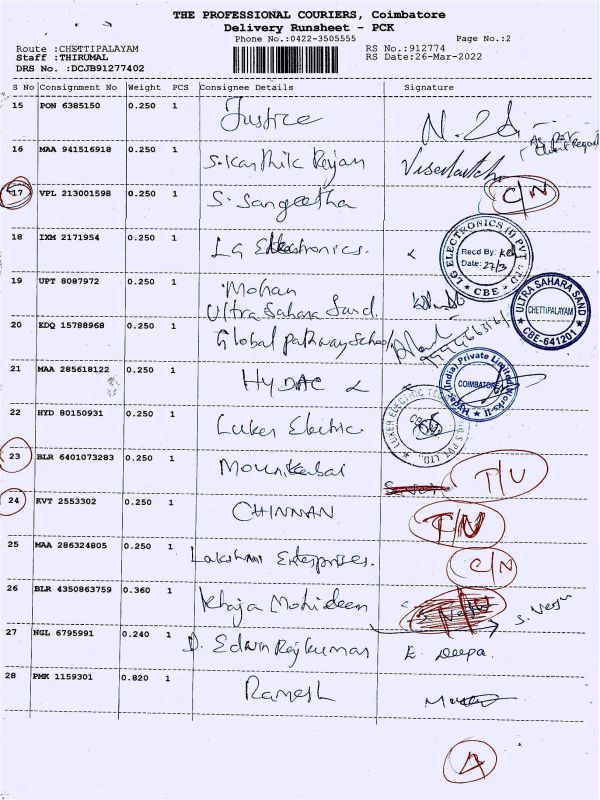 THE PROFESSIONAL COURIERS, Coimbatore
Delivery Runsheet - PCK
Phone No.:0422-3505555 Page No.:2
Route :CHETTIPALAYAM RS No.:912774
Staff :THIRUMAL RS Date:26-Mar-2022
DRS No. :DCJB91277402
S No Consignment No Weight PCS Consignee Details Signature
15 PON 6385150 0.250 1 Justice
16 MAA 941516918 0.250 1 S. Karthik Rajan
17 VPL 213001598 0.250 1 S. Sangeetha C/N
18 IXM 2171954 0.250 1 LG Electronics.
LG ELECTRONICS (I) PVT LTD
Recd By:
Date: 27/3
CBE
19 UPT 8087972 0.250 1 Mohan
Ultra Sahara Sand.
ULTRA SAHARA SAND
CHETTIPALAYAM
CBE-641201
20 EDQ 15788968 0.250 1 Global pathway School
21 MAA 285618122 0.250 1 HYDAC
Hydac (India) Private Limited Works-II
COIMBATORE
22 HYD 80150931 0.250 1 Luker Electric
LUKER ELECTRIC PVT. LTD.
23 BLR 6401073283 0.250 1 Mounikabai
24 KVT 2553302 0.250 1 CHINNAN
25 MAA 286324805 0.250 1 Lakshmi Enterprises. C/N
26 BLR 4350863759 0.360 1 Khaja Mohideen
27 NGL 6795991 0.240 1 D. Edwin Rajkumar E. Deepa.
28 PMK 1159301 0.820 1 Ramesh